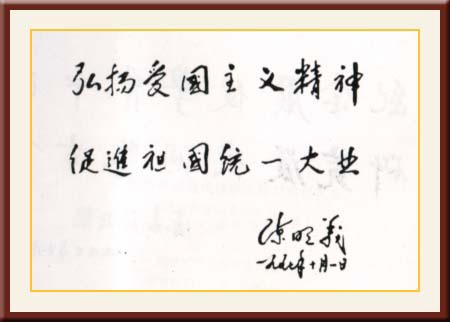 弘扬爱國主义精神
促進祖國统一大业
陈明義
一九九七年十月一日